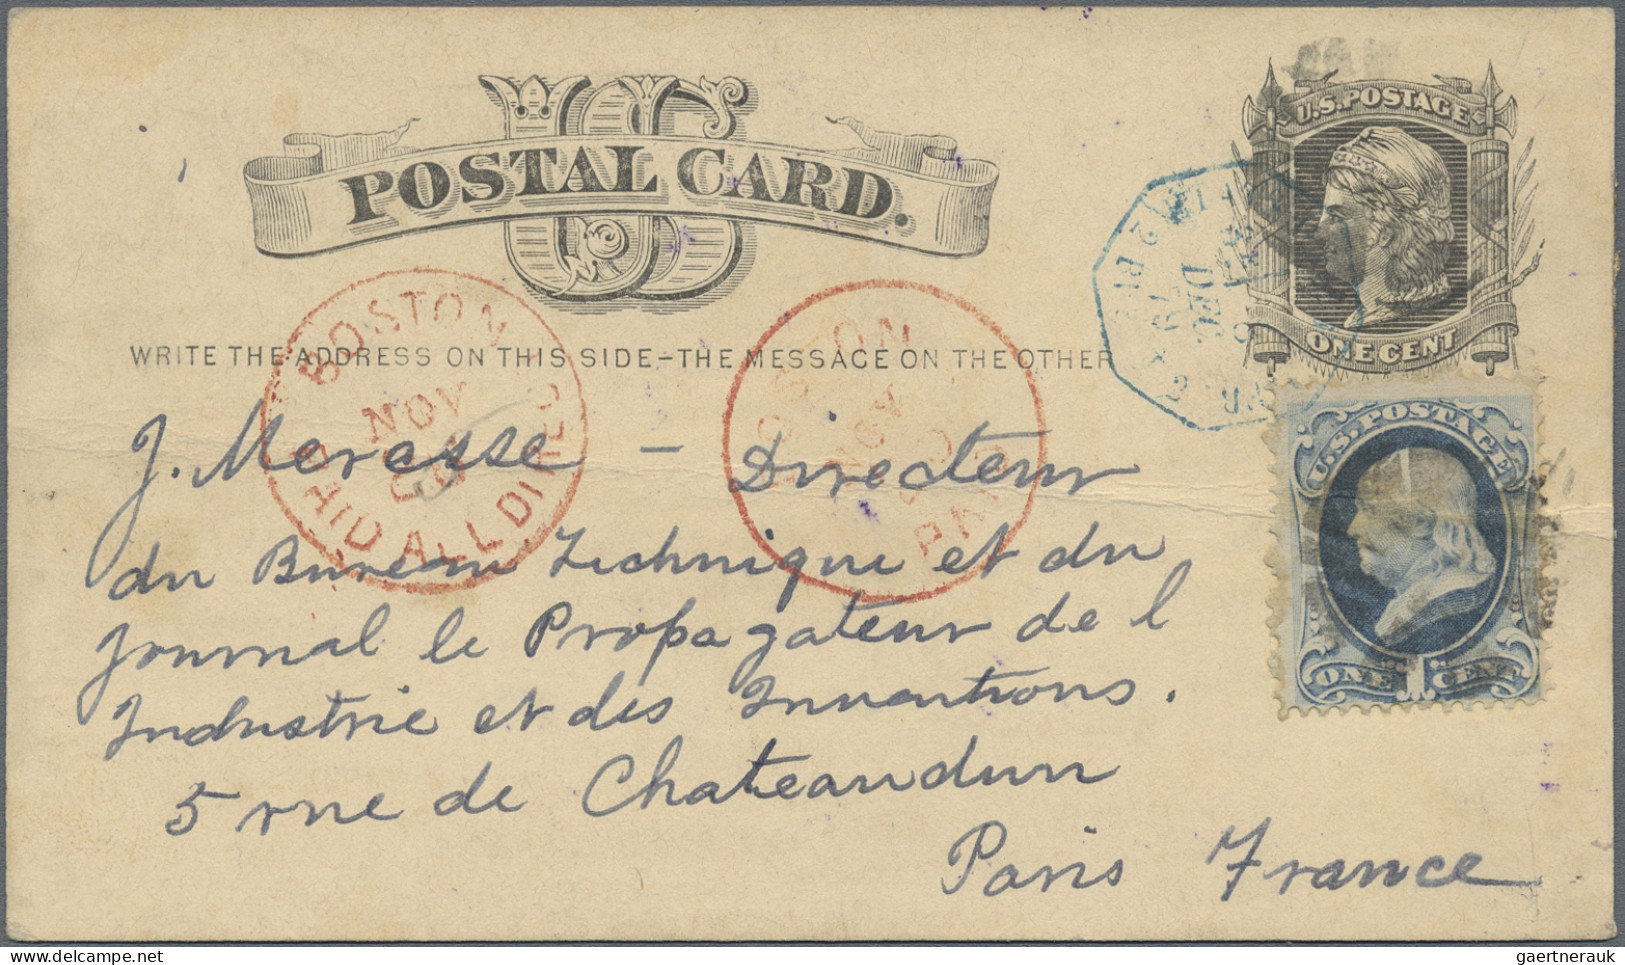 US
POSTAL CARD.
U.S. POSTAGE
ONE CENT
WRITE THE ADDRESS ON THIS SIDE–THE MESSAGE ON THE OTHER
BOSTON
NOV
PAID ALL DIREC
BOSTON
NOV
PAID
DEC
79
U.S. POSTAGE
ONE 1 CENT
J. Merasse – Directeur
du Bureau Technique et du
Journal le Propagateur de l
Industrie et des Inventions.
5 rue de Chateaudun
Paris France
www.delcampe.net
gaertnerauk